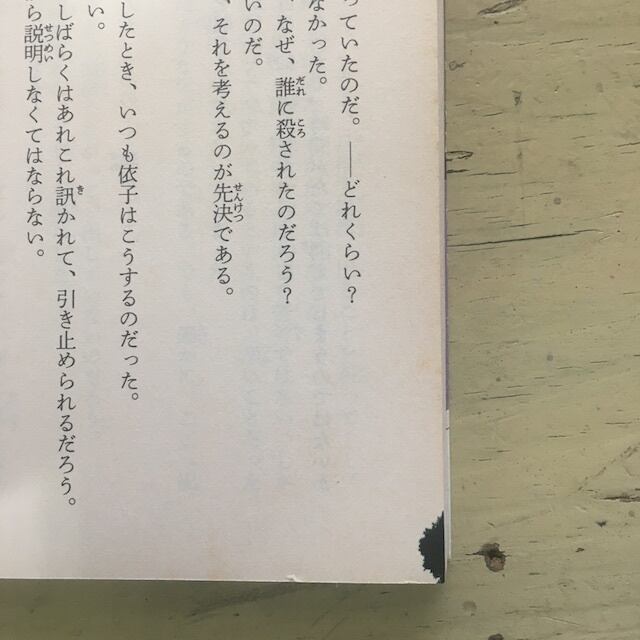 っていたのだ。――どれくらい？
なかった。
、なぜ、誰に殺されたのだろう？
いのだ。
、それを考えるのが先決である。
したとき、いつも依子はこうするのだった。
い。
しばらくはあれこれ訊かれて、引き止められるだろう。
ら説明しなくてはならない。